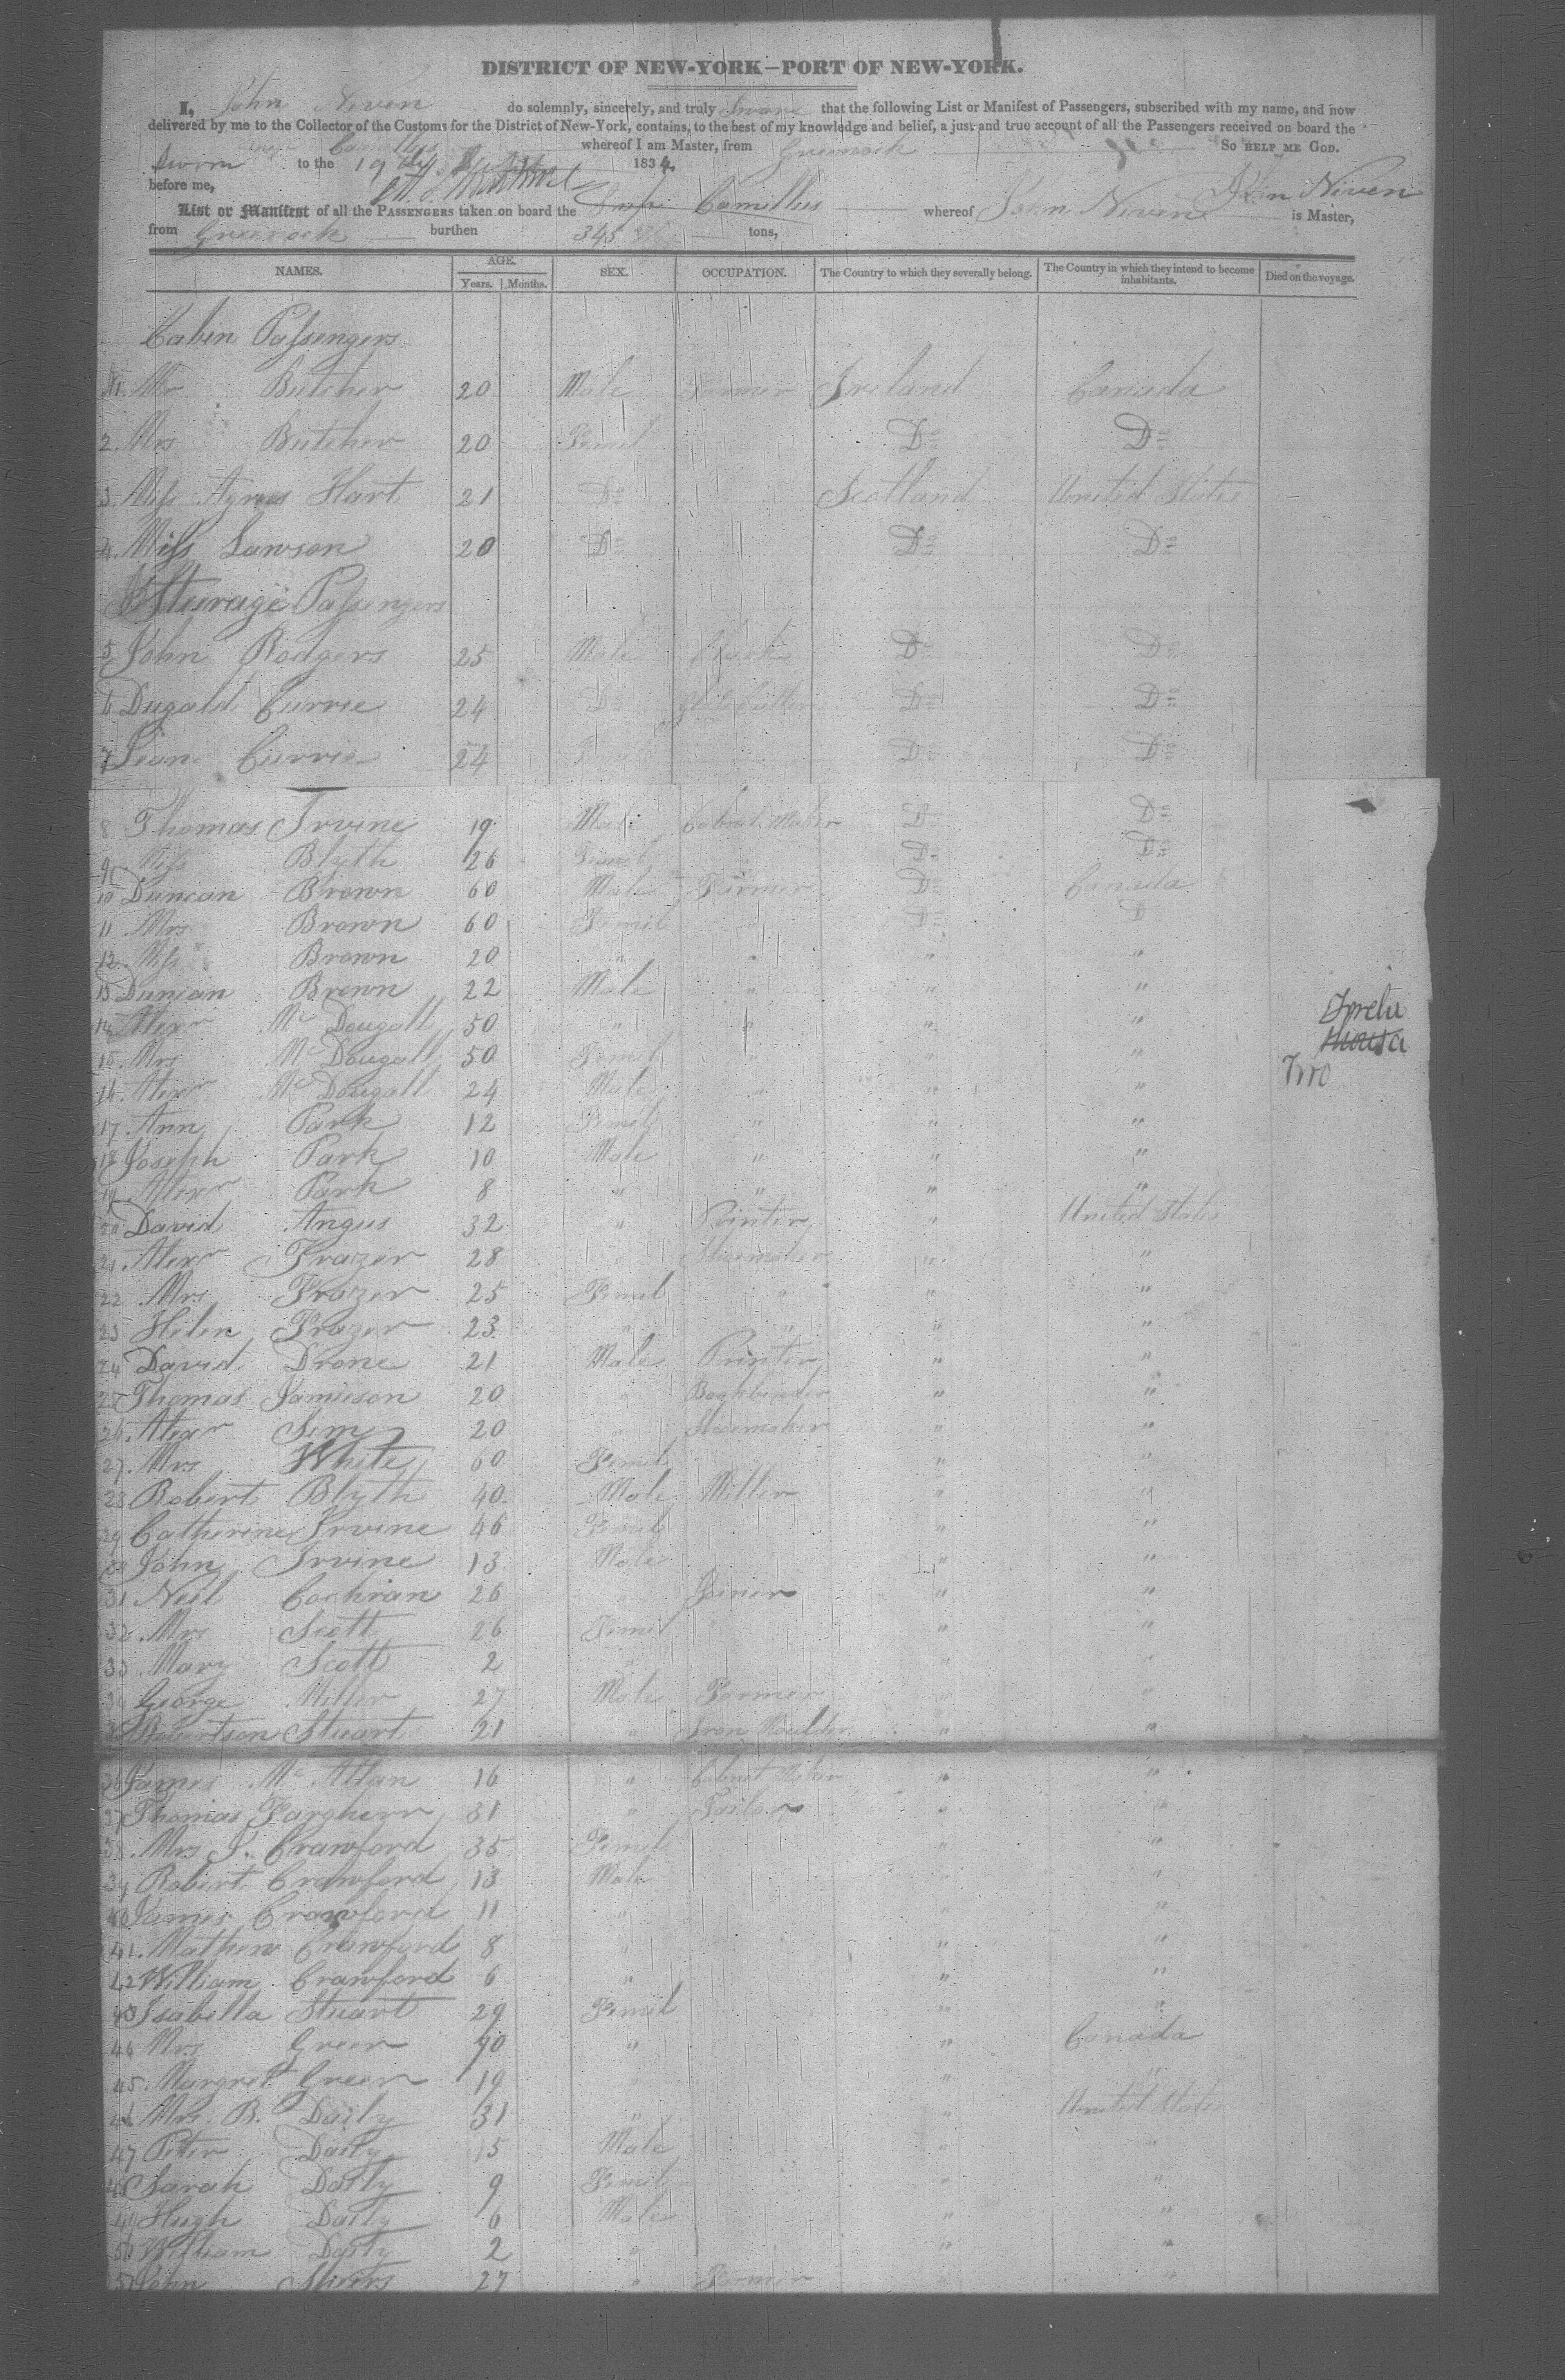 DISTRICT OF NEW-YORK—PORT OF NEW-YORK.
I, John Niven do solemnly, sincerely, and truly Swear that the following List or Manifest of Passengers, subscribed with my name, and now
delivered by me to the Collector of the Customs for the District of New-York, contains, to the best of my knowledge and belief, a just and true account of all the Passengers received on board the
Ship Camillus whereof I am Master, from Greenock So HELP ME GOD.
Sworn to the 19 1834
before me, John Niven
List or Manifest of all the PASSENGERS taken on board the Ship Camillus whereof John Niven is Master,
from Greenock burthen 345 tons,
NAMES. AGE. Years. Months. SEX. OCCUPATION. The Country to which they severally belong. The Country in which they intend to become inhabitants. Died on the voyage.
Cabin Passengers
1 Mr Butcher 20 Male Farmer Ireland Canada
2. Mrs Butcher 20 Femel Do Do
3. Miss Agnes Hart 21 Do Scotland United States
4. Miss Lawson 20 Do Do Do
Sturage Passengers
5 John Rodgers 25 Male Do Do
6 Dugald Currie 24 Do Do Do
7 Jean Currie 24 Femel Do Do
8 Thomas Irvine 19 Male Cabnet Maker Do Do
9 Miss Blyth 26 Femel Do Do
10 Duncan Brown 60 Male Farmer Do Canada
11 Mrs Brown 60 Femel " Do Do
12 Miss Brown 20 " " " "
13 Duncan Brown 22 Male " " "
14 Alexr McDougall 50 " " " "
15. Mrs McDougall 50 Femel " " "
16. Alexr McDougall 24 Male " " "
17. Ann Park 12 Femel " " "
18 Joseph Park 10 Male " " "
19 Alexr Park 8 " " " "
20 David Angus 32 " Printer " United States
21. Alexr Frazer 28 " Shoemaker " "
22 Mrs Frazer 25 Femel " " "
23 Helen Frazer 23 " " " "
24 David Drone 21 Male Printer " "
25 Thomas Jamieson 20 " Bookbinder " "
26. Alexr Sim 20 " Shoemaker " "
27. Mrs White 60 Femel " "
28 Robert Blyth 40 Male Miller " "
29 Catherine Irvine 46 Femel " "
30 John Irvine 13 Male " "
31 Neil Cochran 26 " Joiner " "
32. Mrs Scott 26 Femel " "
33 Mary Scott 2 " " "
34 George Miller 27 Male Farmer " "
35 Robertson Stuart 21 " Iron Moulder " "
36 James McAllan 16 " Cabnet Maker " "
37 Thomas Fargherr 31 " Tailor " "
38. Mrs J. Crawford 35 Femel " "
39 Robert Crawford 13 Male " "
40 James Crawford 11 " " "
41. Mathew Crawford 8 " " "
42 William Crawford 6 " " "
43 Isabella Stuart 29 Femel " "
44 Mrs Greer " " Canada
45. Margret Greer 19 " " "
46 Mrs. B. Daily 31 " " United States
47 Peter Daily 15 Male " "
48 Sarah Daily 9 Femel " "
49 Hugh Daily 6 Male " "
50 William Daily 2 " " "
51 John 27 " Farmer " "
Two